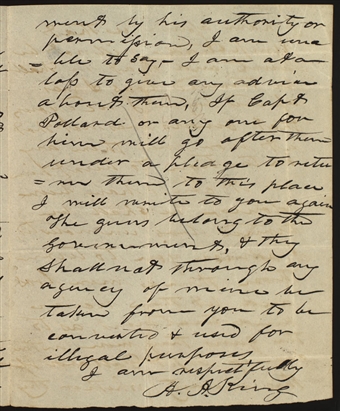 ment by his authority or
permission, I am una
= ble to say - I am at a
loss to give any advice
about them, If Capt
Pollard or any one for
him will go after them
under a pledge to retu
= rn them to this place
I will write to you again
The guns belong to the
Government, & they
Shall not through any
agency of mine be
taken from you to be
converted & used for
illegal purposes
I am respectfully
King